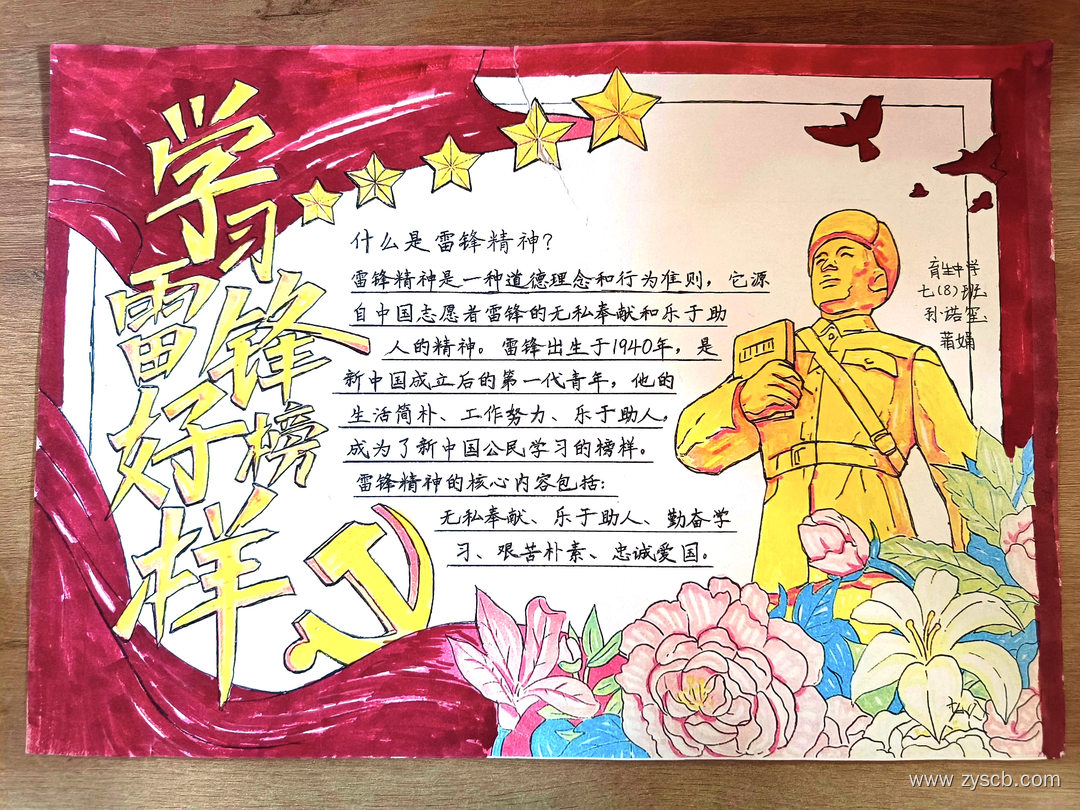 学习
雷锋
好榜
样
什么是雷锋精神?
雷锋精神是一种道德理念和行为准则,它源
自中国志愿者雷锋的无私奉献和乐于助
人的精神。雷锋出生于1940年,是
新中国成立后的第一代青年,他的
生活简朴、工作努力、乐于助人,
成为了新中国公民学习的榜样。
雷锋精神的核心内容包括:
无私奉献、乐于助人、勤奋学
习、艰苦朴素、忠诚爱国。
育生中学
七(8)班
www.zyscb.com